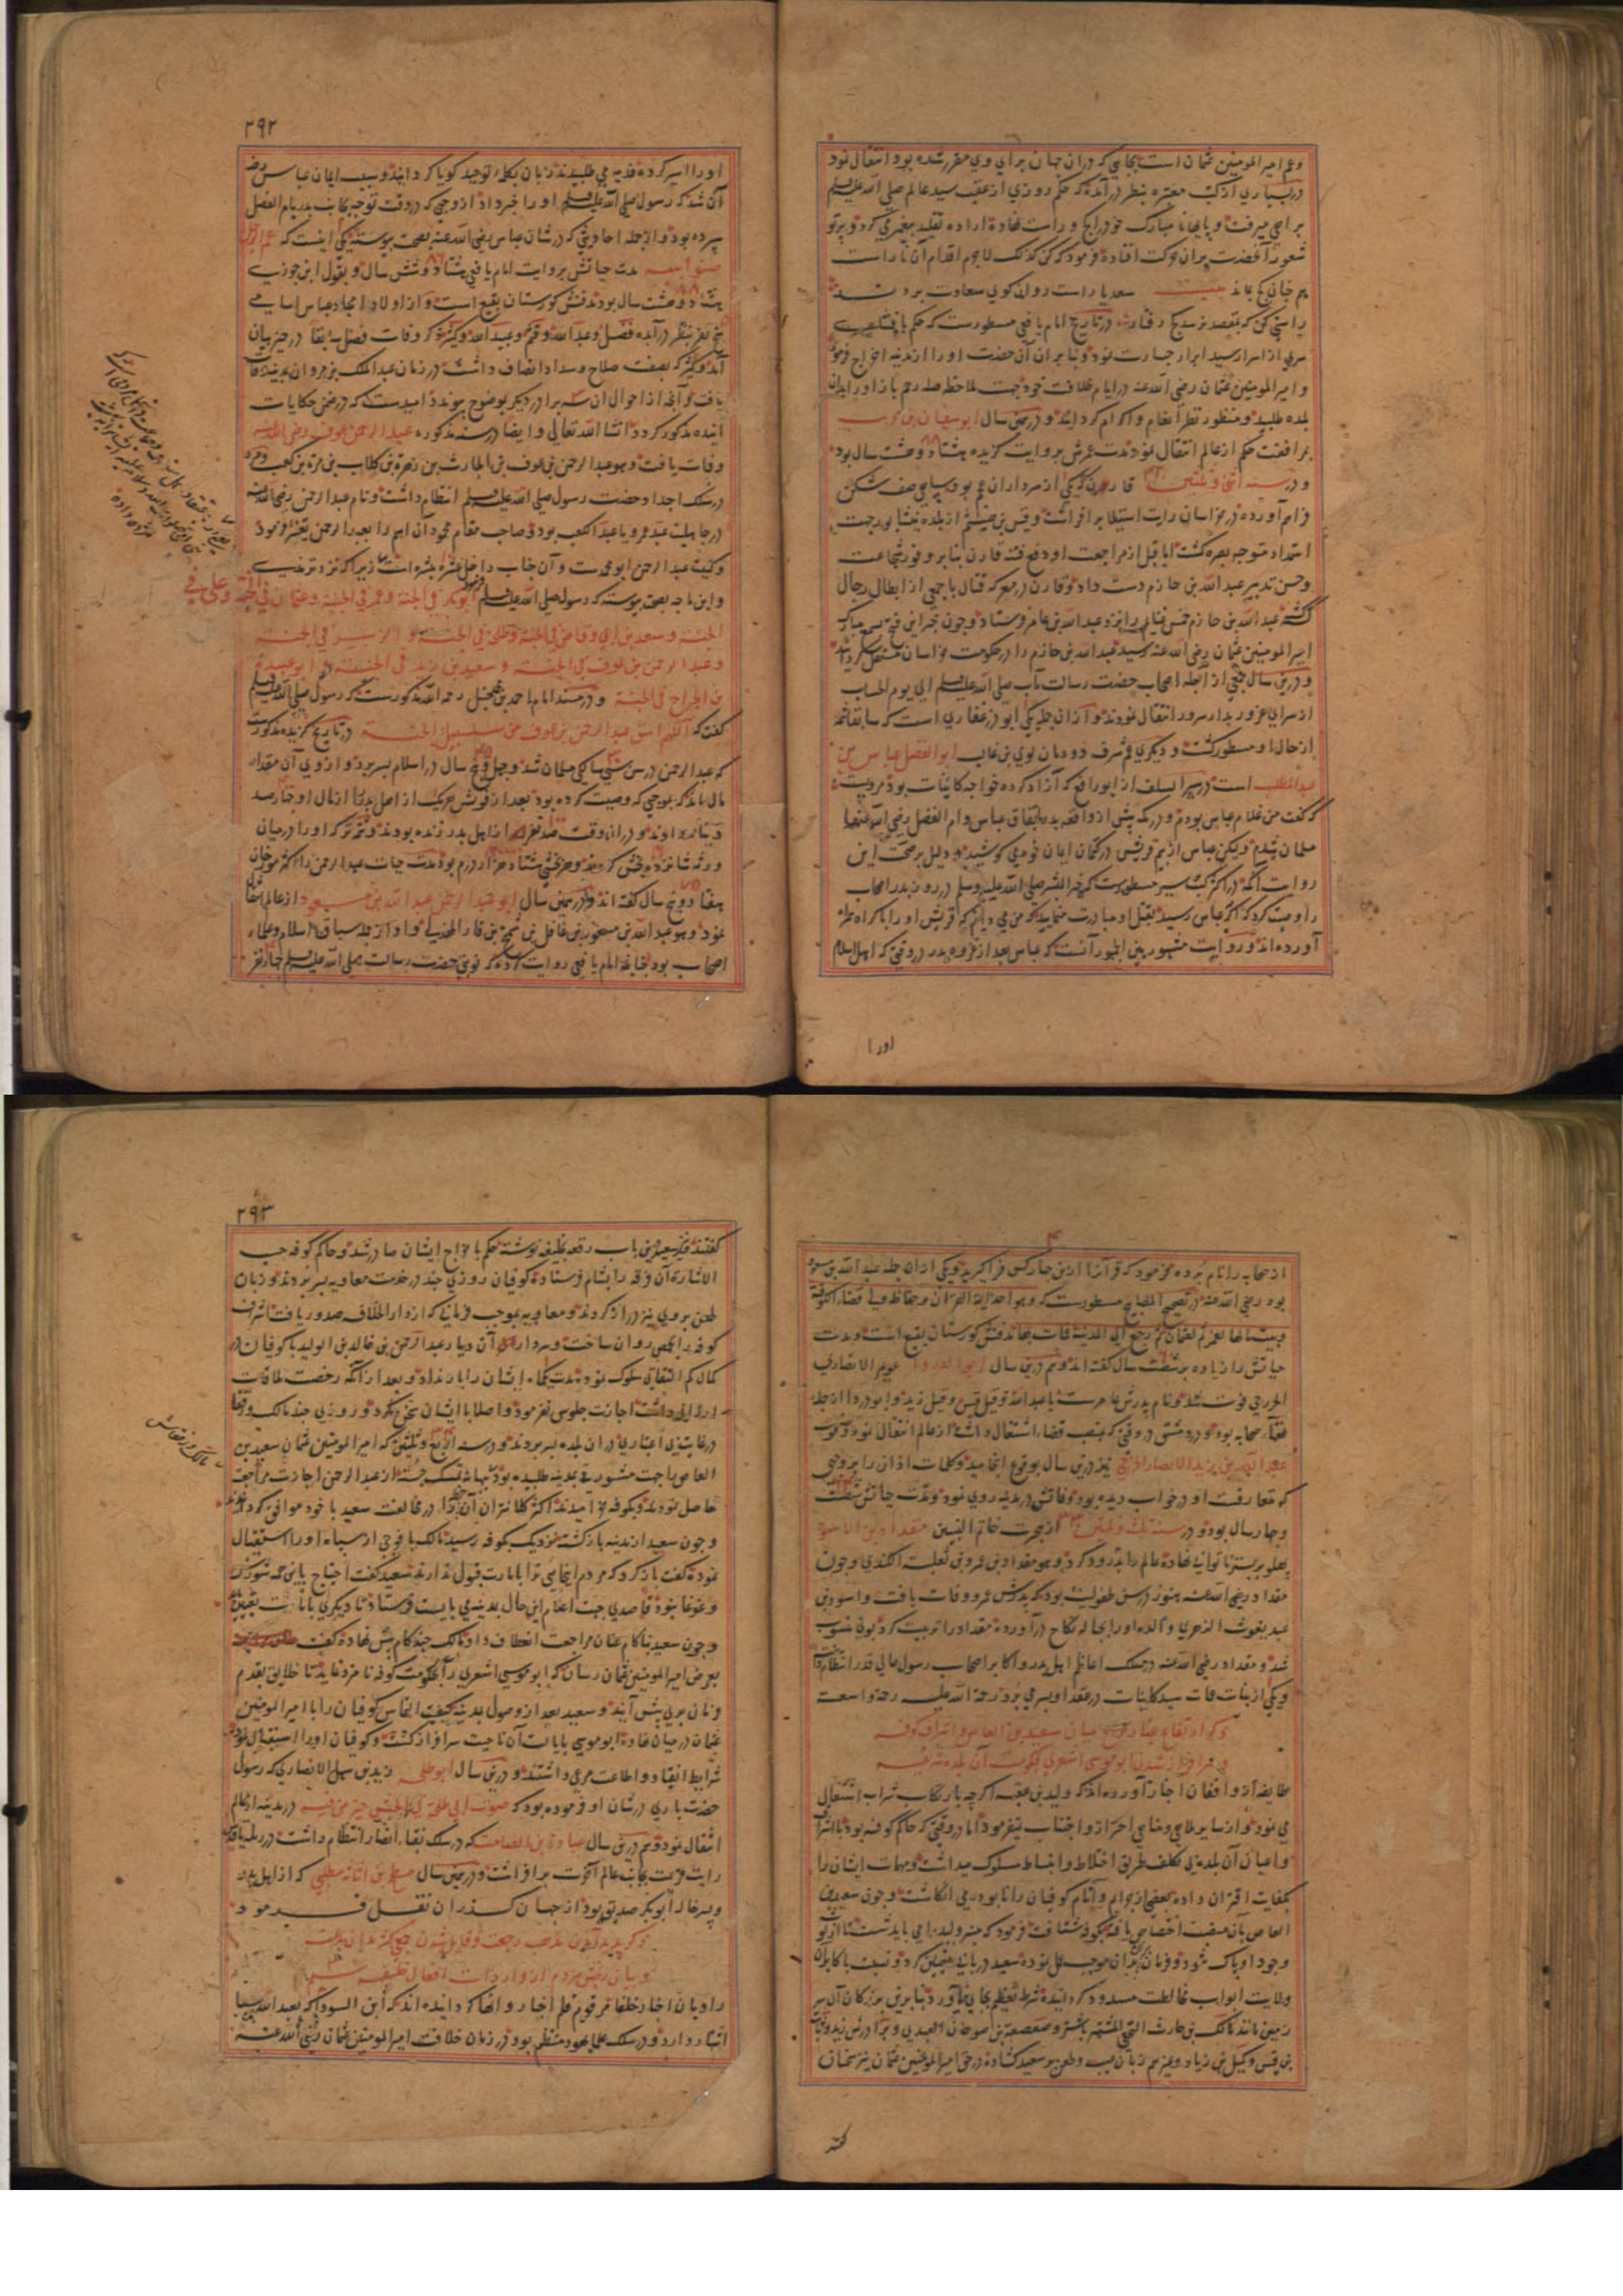 وعم امیر المومنین عثمان است بجایی که در ان جهان برای وی مقرر شده بود انتقال نمود
در بسیاری از کتب معتبره بنظر در آمده که حکم روزی از عقب سید عالم صلی الله علیه وسلم
براهی میرفت و
شعور آنحضرت بران حرکت افتاده فرمود که کن کذلک لاجرم اقدام آن ناراست
هم چنان کج بماند بیت سعدیا راست روان کوی سعادت بردند
راستی کن که بمقصد نرسد کج رفتار در تاریخ امام یافعی مسطورست که حکم بافشاء
سری از اسرار سید ابرار جسارت نمود و بنا بران آن حضت او را از مدینه اخراج فرمود
و امیر المومنین عثمان رضی الله عنه در ایام خلافت خود جهت ملاحظه صله رحم باز او را بدان
بلده طلبید و منظور نظر انعام و اکرام کردانید و در همین سال ابو سفیان بن حرب
بمرافقت حکم از عالم انتقال نمود مدت عمرش بروایت کزیده هشتاد و هشت سال بود
و در سنه اثنی و ثلثین قارن که یکی از سرداران عجم بود سپاهی صف شکن
فراهم آورده در خراسان رایت استیلا بر افراشت و قیس بن هیثم از بلده نیشابور جهت
استمداد متوجه بصره کشت اما قبل از مراجعت او دفع فتنه قارن بنا بر وفور شجاعت
وحسن تدبیر عبد الله بن حازم دست داد و قارن در معرکه قتال با جمعی از ابطال رجال
کشته عبد الله بن حازم خمس غنایم را نزد عبد الله بن عامر فرستاد و چون خبر این فتح بسمع مبارک
امیر المومنین عثمان رضی الله عنه رسید عبد الله بن حازم را در حکومت خراسان مستقل کردانید
و درین سال جمعی از اجله اصحاب حضرت رسالت مآب صلی الله علیه وسلم الی یوم الحساب
از سرای غرور بدار سرور انتقال نمودند و از ان جمله یکی ابو ذر غفاری است که سابقا شمه
از حال او مسطور کشت و دیکری عم شرف دودمان لوی بن غالب ابو الفضل عباس بن
عبد المطلب است در سیر السلف از ابو رافع که آزاد کرده خواجه کاینات بود مرویست
که کفت من غلام عباس بودم و در مکه پیش از واقعه بدر باتفاق عباس وام الفضل رضی الله عنهما
مسلمان شدم ولیکن عباس از بیم قریش در کتمان ایمان خود می کوشید و دلیل بر صحت این
روایت آنکه در اکثر کتب سیر مسطورست که خیر البشر صلی الله علیه وسلم در روز بدر اصحاب
را وصیت کرد که اکر بعباس رسید بقتل او مبادرت منمایید که من می دانم که قریش او را باکراه همراه
آورده اند و روایت مشهور بین الجمهور آنست که عباس بعد از غزوه بدر در وقتی که اهل اسلام
اورا
۲۹۲
اورا اسیر کرده فدیه می طلبیدند زبان بکلمه توحید کویا کردانید و سبب ایمان عباس رض
آن شد که رسول صلی الله علیه وسلم او را خبر داد از وجهی که در وقت توجه بجانب بدر بام الفضل
سپرده بود و از جمله احادیثی که در شان عباس رضی الله عنه بصحت پیوسته یکی اینست که عم الرجل
صنو ابیه مدت حیاتش بروایت امام یافعی هشتاد و شش سال و بقول ابن جوزی
هشتاد و هشت سال بود مدفنش کورستان بقیع است و از اولاد امجاد عباس اسامی
پنج نفر بنظر در آمده فضل و عبد الله و قثم و عبید الله و کثیر ذکر وفات فضل سابقا در حیز بیان
آمد و کثیر که بصفت صلاح و سداد اتصاف داشت در زمان عبد الملک بن مروان بمدینه وفات
یافت و آنچه از احوال ان سه برادر دیکر بوضوح پیوندد امیدست که در ضمن حکایات
آینده مذکور کردد انشا الله تعالی و ایضا در سنه مذکوره عبد الرحمن عوف رضی الله عنه
وفات یافت و هو عبد الرحمن بن عوف بن الحارث بن زهرة بن کلاب بن مرة بن کعب و مره
در سلک اجداد حضرت رسول صلی الله علیه وسلم انتظام داشت و نام عبد الرحمن رضی الله عنه
در جاهلیت عبد عمرو یا عبد الکعبه بود و صاحب مقام محمود آن اسم را بعبد الرحمن تغییر فرمود
وکنیت عبد الرحمن ابو محمدست و آن جناب داخل عشره مبشره است زیرا که نزد ترمذی
و ابن ماجه بصحت پیوسته که رسول صلی الله علیه وسلم فرمود ابو بکر فی الجنة وعمر فی الجنة وعثمان فی الجنة وعلی فی
الجنة وسعد بن ابی وقاص فی الجنة وطلحة فی الجنة والزبیر فی الجنة
وعبد الرحمن بن عوف فی الجنة وسعید بن زید فی الجنة وابو عبیدة
بن الجراح فی الجنة و در مسند امام احمد بن حنبل رحمه الله مذکورست که رسول صلی الله علیه وسلم
کفت که اللهم اسق عبد الرحمن بن عوف من سلسبیل الجنة در تاریخ کزیده مذکورست
که عبد الرحمن در سن سی سالکی مسلمان شد و چهل و پنج سال در اسلام بسر برد و از وی آن مقدار
مال بماند که بموجبی که وصیت کرده بود بعد از فوتش هر یک از اهل بدر را از مال او چهار صد
دینار دادند و در ان وقت صد نفر از اهل بدر زنده بودند و تتمه ترکه او را در میان
ورثه شانزده بخش کردند و هر بخشی هشتاد هزار درم بود مدت حیات عبد الرحمن را اکثر مورخان
هفتاد و پنج سال کفته اند و در همین سال ابو عبد الرحمن عبد الله بن مسعود از عالم انتقال
نمود و هو عبد الله بن مسعود بن غافل بن شمخ بن فار الهذلی و او از جمله سباق اسلام و علماء
اصحاب بود چنانچه امام یافعی روایت کرده که نوبتی حضرت رسالت صلی الله علیه وسلم چهار نفر
از صحابه را نام برده فرمود که قرآنرا ازین چهار کس فرا کیرید و یکی از ان جمله عبد الله بن مسعود
بود رضی الله عنه در تصحیح المصابیح مسطورست که وهو احد ائمة القران وحفاظه ولی قضاء الکوفة
وبیت مالها لعمر ثم لعثمان ثم رجع الی المدینة فمات بها مدفنش کورستان بقیع است و مدت
حیاتش را زیاده بر شصت سال کفته اند و هم درین سال ابو الدردا عویمر الانصاری
الخزرجی فوت شد و نام پدرش عامرست یا عبد الله و قیل قیس و قیل زید و ابو دردا از جمله
فقهاء صحابه بود و در دمشق در وقتی که بمنصب قضاء اشتغال داشت از عالم انتقال نمود و فوت
عبد الله بن زید الانصاری الخزرجی نیز درین سال بوقوع انجامید و کلمات اذان را بروجهی
که متعارفست او در خواب دیده بود وفاتش در مدینه روی نمود و مدت حیاتش شصت
و چهار سال بود و در سنه ثلث و ثلثین از هجرت خاتم النبیین مقداد بن الاسود
پهلو بر بستر ناتوانی نهاده عالم را بدرود کرد و هو مقداد بن عمرو بن ثعلبة الکندی و چون
مقداد رضی الله عنه هنوز در سن طفولیت بود که پدرش عمرو وفات یافت و اسود بن
عبد یغوث الزهری والده او را بحباله نکاح در آورده مقداد را تربیت کرد بوی منسوب
شد و مقداد رضی الله عنه در سلک اعاظم اهل بدر و اکابر اصحاب رسول عالی قدر انتظام یافت
و یکی از بنات عمات سید کاینات در عقد او بسر می برد رحمة الله علیه رحمة واسعة
ذکر ارتفاع غبار نزاع میان سعید بن العاص و اشراف کوفه
و سرافراز شدن ابو موسی اشعری بحکومت آن بلده شریفه
طایفه از واقفان اخبار آورده اند که ولید بن عقبه اکرچه بارتکاب شراب اشتغال
می نمود و از سایر ملاهی و مناهی احتراز و اجتناب نمیفرمود اما در وقتی که حاکم کوفه بود با اشراف
واعیان آن بلده بی تکلف طریق اختلاط و انبساط مسلوک میداشت و مهمات ایشان را
بکفایت اقتران داده بعضی از جرایم و آثام کوفیان را نابود می انکاشت و چون سعید بن
العاص بآن منصب اختصاص یافته بکوفه شتافت فرمود که منبر ولید را می باید شست تا از لوث
وجود او پاک شود و فرمان بران بدان موجب عمل نموده سعید دربانی تعیین کرد و نسبت باکابر آن
ولایت ابواب مخالطت مسدود کردانیده شرط تعظیم بجای نمی آورد بنا برین بزرکان آن سر
زمین مانند مالک بن حارث النخعی المشتهر باشتر و صعصعة بن صوحان العبدی و برادرش زید و ثابت
بن قیس و کمیل بن زیاد و غیرهم زبان بعیب و طعن بر سعید کشاده در حق امیر المومنین عثمان نیز سخنان
کفتند
۲۹۳
کفتند و سعید درین باب رقعه بخلیفه نوشته حکم باخراج ایشان صادر شد و حاکم کوفه حسب
الاشاره آن فرقه را بشام فرستاد و کوفیان روزی چند در خدمت معاویه بسر بردند و زبان
طعن بر وی نیز دراز کردند و معاویه بموجب فرمانی که از دار الخلافه صدور یافت اشراف
کوفه را بحمص روان ساخت و سردار آن دیار عبد الرحمن بن خالد بن الولید با کوفیان در
کمال کم التفاتی سلوک نموده مدت یکماه ایشان را بار نداد و بعد از آنکه رخصت ملاقات
ارزانی داشت اجازت جلوس نفرمود و اصلا با ایشان سخن نکرد و روزی چند مالک و رفقا
در غایت بی اعتباری در ان بلده بسر بردند و در سنه اربع و ثلثین که امیر المومنین عثمان سعید بن
العاص را جهت مشورتی بمدینه طلبیده بود بهانه تمسک جسته از عبد الرحمن اجازت مراجعت
حاصل نمودند و بکوفه خرامیدند اکثر کلانتران آن خطه را در مخالفت سعید با خود موافق کردند
و چون سعید از مدینه باز کشته نزدیک بکوفه رسید مالک با فوجی از سپاه او را استقبال
نموده کفت باز کرد که مردم اینجایی ترا بامارت قبول ندارند سعید کفت احتیاج باین همه شورش
وغوغا نبود قاصدی جهت اعلام این حال بمدینه می بایست فرستاد تا دیکری بایالت تعیین
و چون سعید ناکام عنان مراجعت انعطاف داد مالک چند کام پیش نهاده کفت
بعرض امیر المومنین عثمان رسان که ابو موسی اشعری را بحکومت کوفه نامزد نماید تا خلایق بقدم
فرمان بری پیش آیند و سعید بعد از وصول بمدینه کیفیت التماس کوفیان را با امیر المومنین
عثمان در میان نهاده ابو موسی بایالت آن ناحیت سرافراز کشت و کوفیان او را استقبال نموده
شرایط انقیاد و اطاعت مرعی داشتند و درین سال ابو طلحه زید بن سهل الانصاری که رسول
حضرت باری در شان او فرموده بود که صوت ابی طلحة فی الجیش خیر من فئة در مدینه از عالم
انتقال نمود و هم درین سال عبادة بن الصامت که در سلک نقباء انصار انتظام داشت در رمله یا قدس
رایت عزیمت بجانب عالم آخرت برافراشت و در همین سال مسطح بن اثاثه مطلبی که از اهل بدر
و پسر خاله ابو بکر صدیق بود از جهان کذران نقل فرمود
ذکر پدید آمدن مذهب رجعت و قایل شدن جمعی کثیر بدان بدعت
و بیان رنجش مردم از واردات افعال خلیفه
راویان اخبار خلفا مرقوم قلم اخبار و انها کردانیده اند که ابن السودا که بعبد الله بن سبا
اشتهار دارد و در سلک علماء یهود منتظم بود در زمان خلافت امیر المومنین عثمان رضی الله عنه
مالک و رفقایش